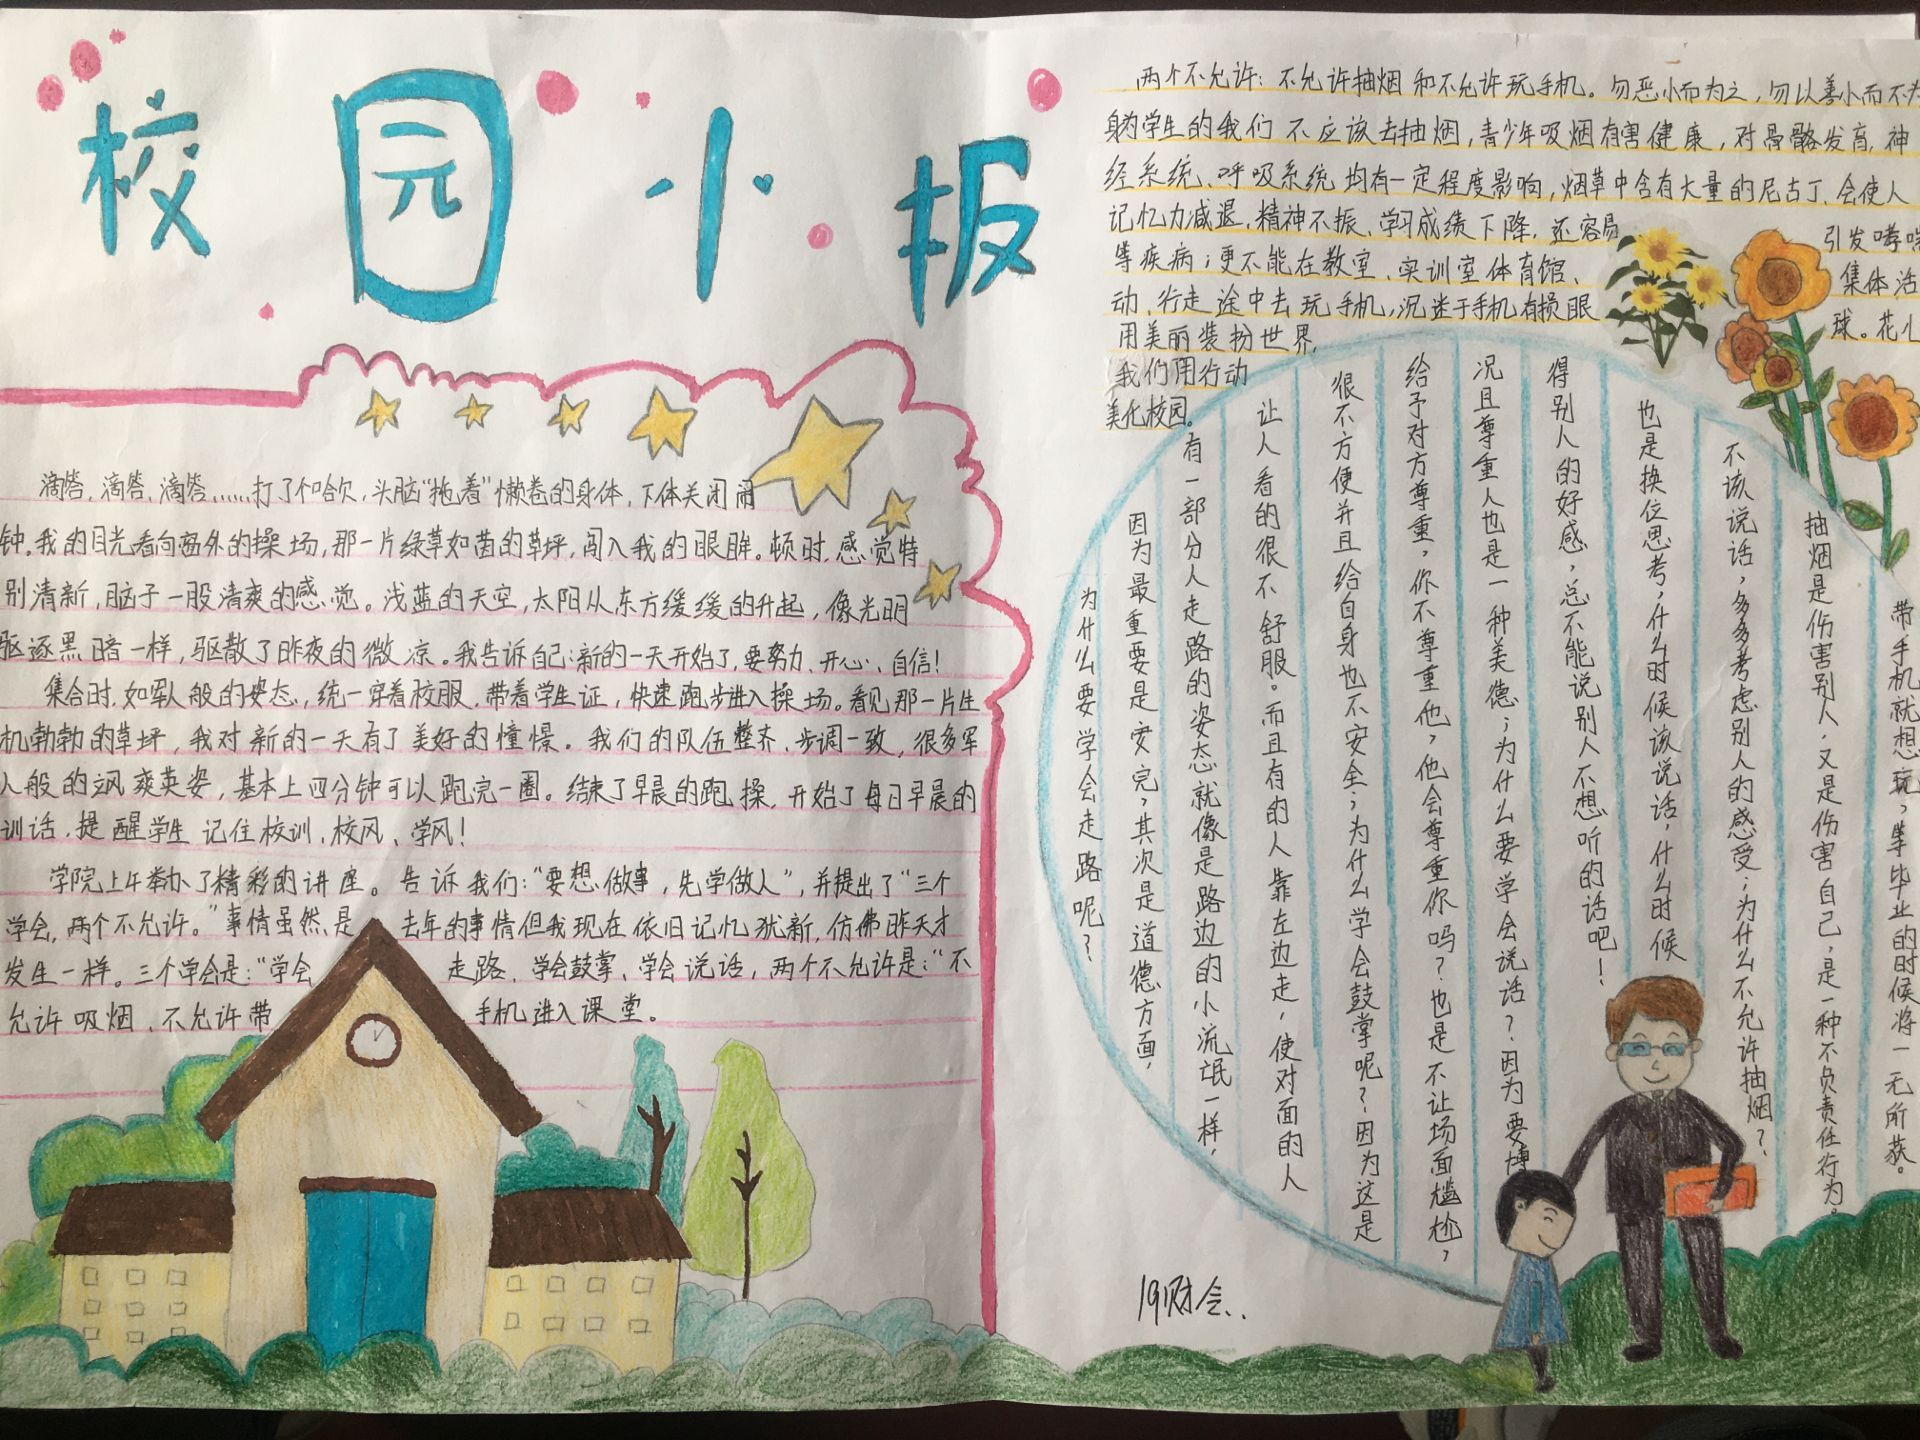 校园小报
滴答,滴答,滴答……打了个哈欠,头脑“拖着”懒卷的身体,下体关闭闹
钟。我的目光看向窗外的操场,那一片绿草如茵的草坪,闯入我的眼眸。顿时,感觉特
别清新,脑子一股清爽的感觉。浅蓝的天空,太阳从东方缓缓的升起,像光明
驱逐黑暗一样,驱散了昨夜的微凉。我告诉自己:新的一天开始了,要努力、开心、自信!
集合时,如军人般的姿态,统一穿着校服,带着学生证,快速跑步进入操场。看见那一片生
机勃勃的草坪,我对新的一天有了美好的憧憬。我们的队伍整齐、步调一致,很多军
人般的飒爽英姿,基本上四分钟可以跑完一圈。结束了早晨的跑操,开始了每日早晨的
训话,提醒学生记住校训、校风、学风!
学院上午举办了精彩的讲座。告诉我们:“要想做事,先学做人”,并提出了“三个
学会,两个不允许。”事情虽然是去年的事情但我现在依旧记忆犹新,仿佛昨天才
发生一样。三个学会是:“学会走路、学会鼓掌、学会说话,两个不允许是:“不
允许吸烟、不允许带手机进入课堂。
两个不允许:不允许抽烟和不允许玩手机。勿恶小而为之,勿以善小而不为
身为学生的我们不应该去抽烟,青少年吸烟有害健康,对骨骼发育,神
经系统、呼吸系统均有一定程度影响,烟草中含有大量的尼古丁、会使人
记忆力减退、精神不振、学习成绩下降,还容易引发哮喘
等疾病;更不能在教室、实训室体育馆、集体活
动、行走途中去玩手机,沉迷于手机有损眼球。花儿
用美丽装扮世界,
我们用行动
美化校园。
为什么要学会走路呢?
因为最重要是安完,其次是道德方面,
有一部分人走路的姿态就像是路边的小流氓一样,
让人看的很不舒服。而且有的人靠左边走,使对面的人
很不方便并且给自身也不安全;为什么学会鼓掌呢?因为这是
给予对方尊重,你不尊重他,他会尊重你吗?也是不让场面尴尬,
况且尊重人也是一种美德;为什么要学会说话?因为要博
得别人的好感,总不能说别人不想听的话吧!
也是换位思考,什么时候该说话,什么时候
不该说话,多多考虑别人的感受;为什么不允许抽烟?
抽烟是伤害别人,又是伤害自己,是一种不负责任行为。
带手机就想玩,等毕业的时候将一无所获。
19财会..